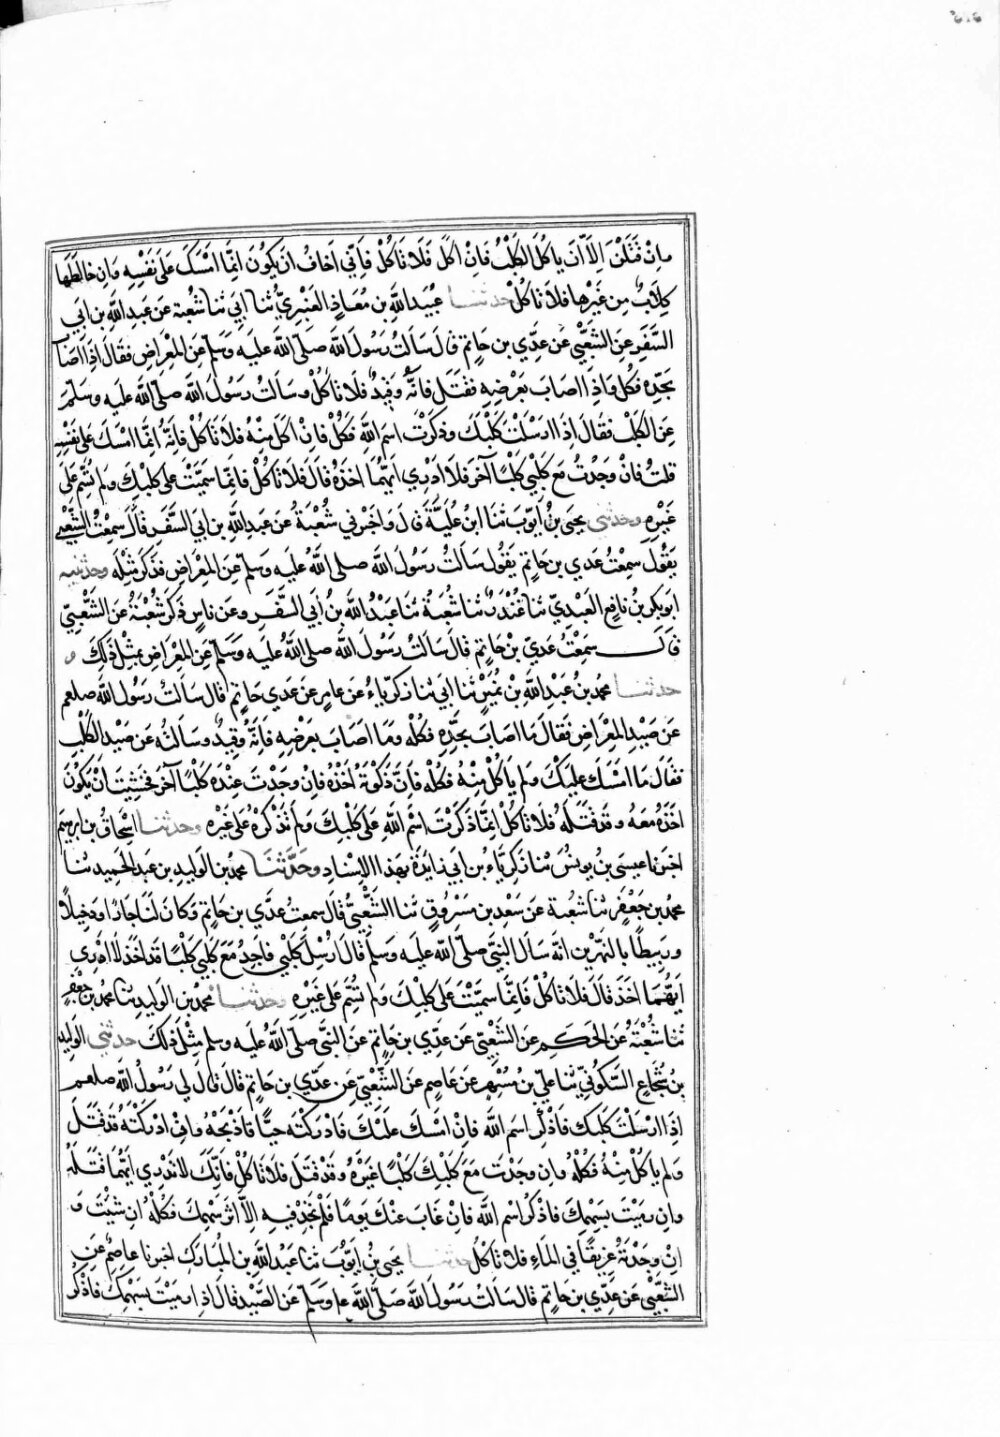 وان قتلن الا ان ياكل الكلب فان اكل فلا تاكل فاني اخاف ان يكون انما امسك على نفسه وان خالطها
كلاب من غيرها فلا تاكل حدثنا عبيد الله بن معاذ العنبري ثنا ابي ثنا شعبة عن عبد الله بن ابي
السفر عن الشعبي عن عدي بن حاتم قال سالت رسول الله صلى الله عليه وسلم عن المعراض فقال اذا اصاب
بحده فكل واذا اصاب بعرضه فقتل فانه وقيذ فلا تاكل وسالت رسول الله صلى الله عليه وسلم
عن الكلب فقال اذا ارسلت كلبك وذكرت اسم الله فكل فان اكل منه فلا تاكل فانه انما امسك على نفسه
قلت فان وجدت مع كلبي كلبا آخر فلا ادري ايهما اخذه قال فلا تاكل فانما سميت على كلبك ولم تسم على
غيره وحدثني يحيى بن ايوب ثنا ابن علية قال واخبرني شعبة عن عبد الله بن ابي السفر قال سمعت الشعبي
يقول سمعت عدي بن حاتم يقول سالت رسول الله صلى الله عليه وسلم عن المعراض فذكر مثله وحدثنيه
ابو بكر بن نافع العبدي ثنا غندر ثنا شعبة ثنا عبد الله بن ابي السفر وعن ناس ذكر شعبة عن الشعبي
قال سمعت عدي بن حاتم قال سالت رسول الله صلى الله عليه وسلم عن المعراض بمثل ذلك و
حدثنا محمد بن عبد الله بن نمير ثنا ابي ثنا زكرياء عن عامر عن عدي حاتم قال سالت رسول الله صلعم
عن صيد المعراض فقال ما اصاب بحده فكله وما اصاب بعرضه فانه وقيذ وسالته عن صيد الكلب
فقال ما امسك عليك ولم ياكل منه فكله فان ذكوته اخذه فان وجدت عنده كلبا آخر فخشيت ان يكون
اخذه معه وقد قتله فلا تاكل انما ذكرت اسم الله على كلبك ولم تذكره على غيره وحدثنا اسحاق بن ابرهيم
اخبرنا عيسى بن يونس ثنا زكرياء بن ابي زايدة بهذا الاسناد وحدثنا محمد بن الوليد بن عبد الحميد ثنا
محمد بن جعفر ثنا شعبة عن سعد بن مسروق ثنا الشعبي قال سمعت عدي بن حاتم وكان لنا جارا ودخيلا
وربيطا بالنهرين انه سال النبي صلى الله عليه وسلم قال ارسل كلبي فاجد مع كلبي كلبا قد اخذ لا ادري
ايهما اخذ قال فلا تاكل فانما سميت على كلبك ولم تسم على غيره وحدثنا محمد بن الوليد ثنا محمد بن جعفر
ثنا شعبة عن الحكم عن الشعبي عن عدي بن حاتم عن النبي صلى الله عليه وسلم مثل ذلك حدثني الوليد
بن شجاع السكوني ثنا علي بن مسهر عن عاصم عن الشعبي عن عدي بن حاتم قال قال لي رسول الله صلعم
اذا ارسلت كلبك فاذكر اسم الله فان امسك عليك فادركته حيا فاذبحه وان ادركته قد قتل
ولم ياكل منه فكله وان وجدت مع كلبك كلبا غيره وقد قتل فلا تاكل فانك لا تدري ايهما قتله
وان رميت بسهمك فاذكر اسم الله فان غاب عنك يوما فلم تجد فيه الا اثر سهمك فكله ان شئت و
ان وجدته غريقا في الماء فلا تاكل حدثنا يحيى بن ايوب ثنا عبد الله بن المبارك اخبرنا عاصم عن
الشعبي عن عدي بن حاتم قال سالت رسول الله صلى الله عليه وسلم عن الصيد قال اذا رميت بسهمك فاذكر